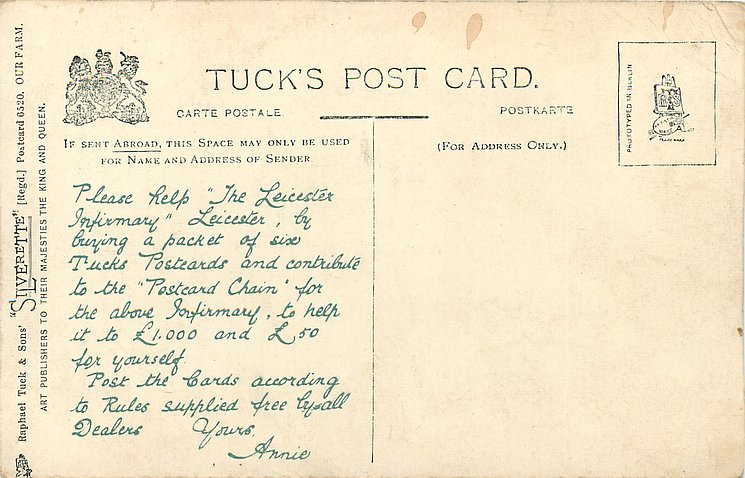 TUCK'S POST CARD.
CARTE POSTALE.
POSTKARTE
IF SENT ABROAD, THIS SPACE MAY ONLY BE USED
FOR NAME AND ADDRESS OF SENDER.
(FOR ADDRESS ONLY.)
PHOTOTYPED IN BERLIN
TRADE MARK
Please help "The Leicester
Infirmary" Leicester, by
buying a packet of six
Tucks Postcards and contribute
to the "Postcard Chain" for
the above Infirmary, to help
it to £1.000 and £50
for yourself.
Post the Cards according
to Rules supplied free by all
Dealers Yours,
Annie
Raphael Tuck & Sons' "SILVERETTE" [Regd.] Postcard 6520. OUR FARM.
ART PUBLISHERS TO THEIR MAJESTIES THE KING AND QUEEN.